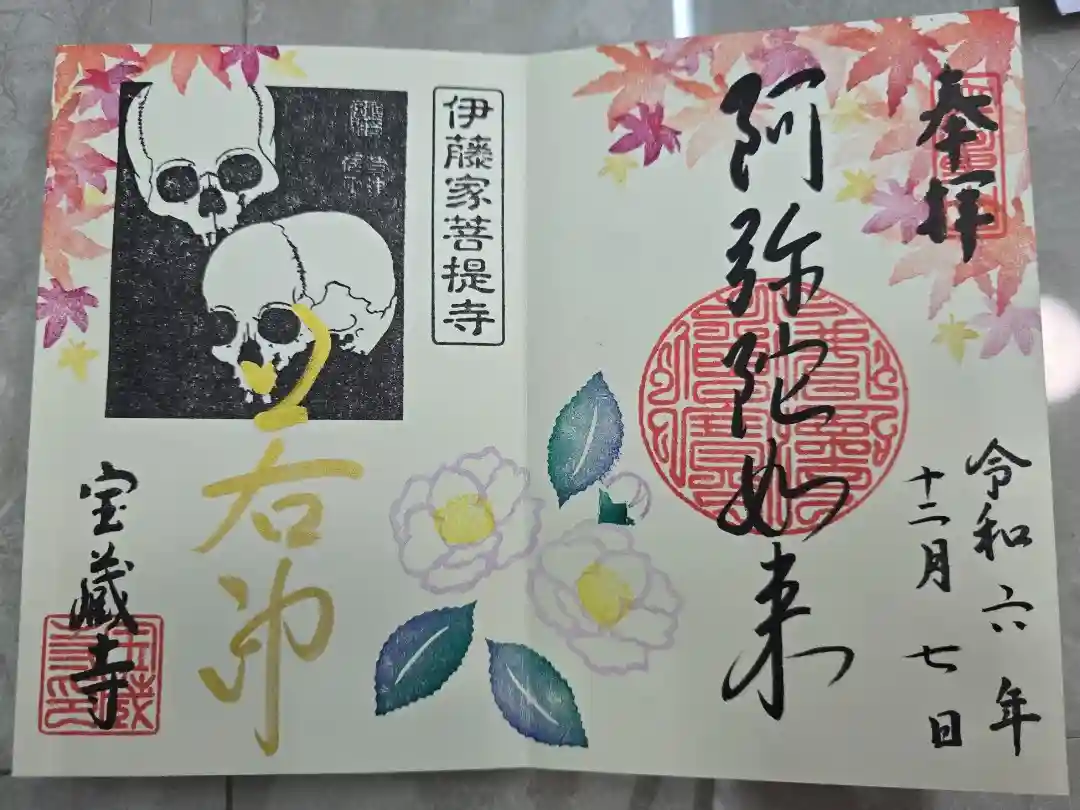 奉拝
令和六年
十二月七日
阿弥陀如来
伊藤家菩提寺
若冲
宝蔵寺